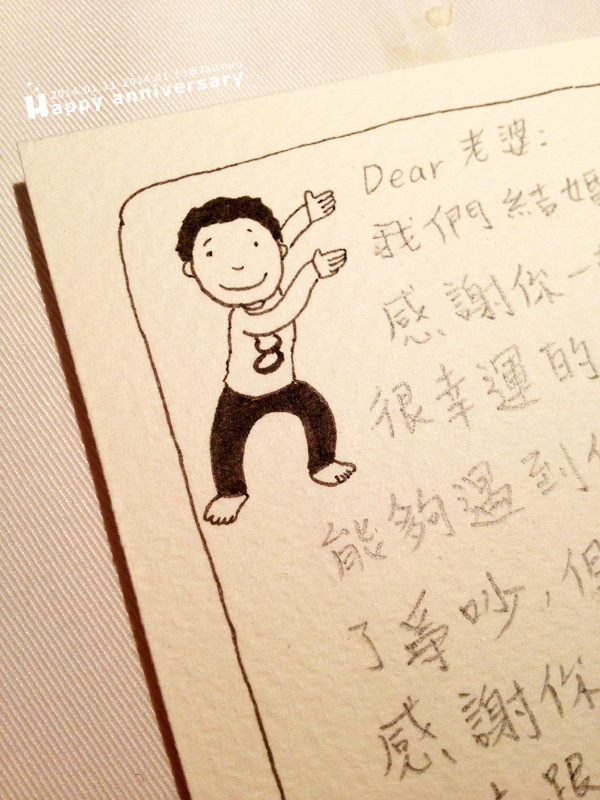 2014.01.11-2014.01.13@Taichun
Happy anniversary
Dear 老婆：
我們結婚
感謝你一
很幸運的
能夠遇到
了爭吵，但
感謝你
跟